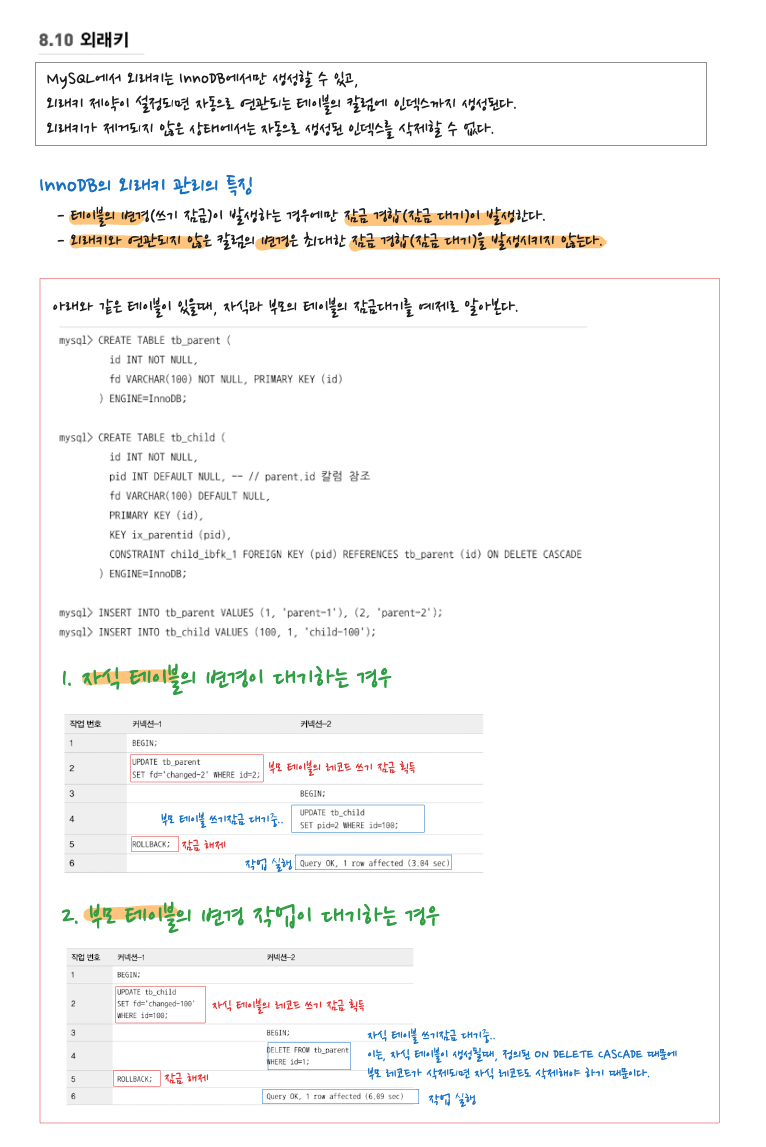 8.10 외래키
MySQL에서 외래키는 InnoDB에서만 생성할 수 있고,
외래키 제약이 설정되면 자동으로 연관되는 테이블의 칼럼에 인덱스까지 생성된다.
외래키가 제거되지 않은 상태에서는 자동으로 생성된 인덱스를 삭제할 수 없다.
InnoDB의 외래키 관리의 특징
- 테이블의 변경(쓰기 잠금)이 발생하는 경우에만 잠금 경합(잠금 대기)이 발생한다.
- 외래키와 연관되지 않은 칼럼의 변경은 최대한 잠금 경합(잠금 대기)을 발생시키지 않는다.
아래와 같은 테이블이 있을때, 자식과 부모의 테이블의 잠금대기를 예제로 알아본다.
mysql> CREATE TABLE tb_parent (
id INT NOT NULL,
fd VARCHAR(100) NOT NULL, PRIMARY KEY (id)
) ENGINE=InnoDB;
mysql> CREATE TABLE tb_child (
id INT NOT NULL,
pid INT DEFAULT NULL, -- // parent.id 칼럼 참조
fd VARCHAR(100) DEFAULT NULL,
PRIMARY KEY (id),
KEY ix_parentid (pid),
CONSTRAINT child_ibfk_1 FOREIGN KEY (pid) REFERENCES tb_parent (id) ON DELETE CASCADE
) ENGINE=InnoDB;
mysql> INSERT INTO tb_parent VALUES (1, 'parent-1'), (2, 'parent-2');
mysql> INSERT INTO tb_child VALUES (100, 1, 'child-100');
1. 자식 테이블의 변경이 대기하는 경우
작업 번호 커넥션-1 커넥션-2
1 BEGIN;
2 UPDATE tb_parent
SET fd='changed-2' WHERE id=2; 부모 테이블의 레코드 쓰기 잠금 획득
3 BEGIN;
4 부모 테이블 쓰기잠금 대기중.. UPDATE tb_child
SET pid=2 WHERE id=100;
5 ROLLBACK; 잠금 해제
6 작업 실행 Query OK, 1 row affected (3.04 sec)
2. 부모 테이블의 변경 작업이 대기하는 경우
작업 번호 커넥션-1 커넥션-2
1 BEGIN;
2 UPDATE tb_child
SET fd='changed-100' 자식 테이블의 레코드 쓰기 잠금 획득
WHERE id=100;
3 BEGIN; 자식 테이블 쓰기잠금 대기중..
4 DELETE FROM tb_parent 이는, 자식 테이블이 생성될때, 정의된 ON DELETE CASCADE 때문에
WHERE id=1; 부모 레코드가 삭제되면 자식 레코드도 삭제해야 하기 때문이다.
5 ROLLBACK; 잠금 해제
6 Query OK, 1 row affected (6.09 sec) 작업 실행